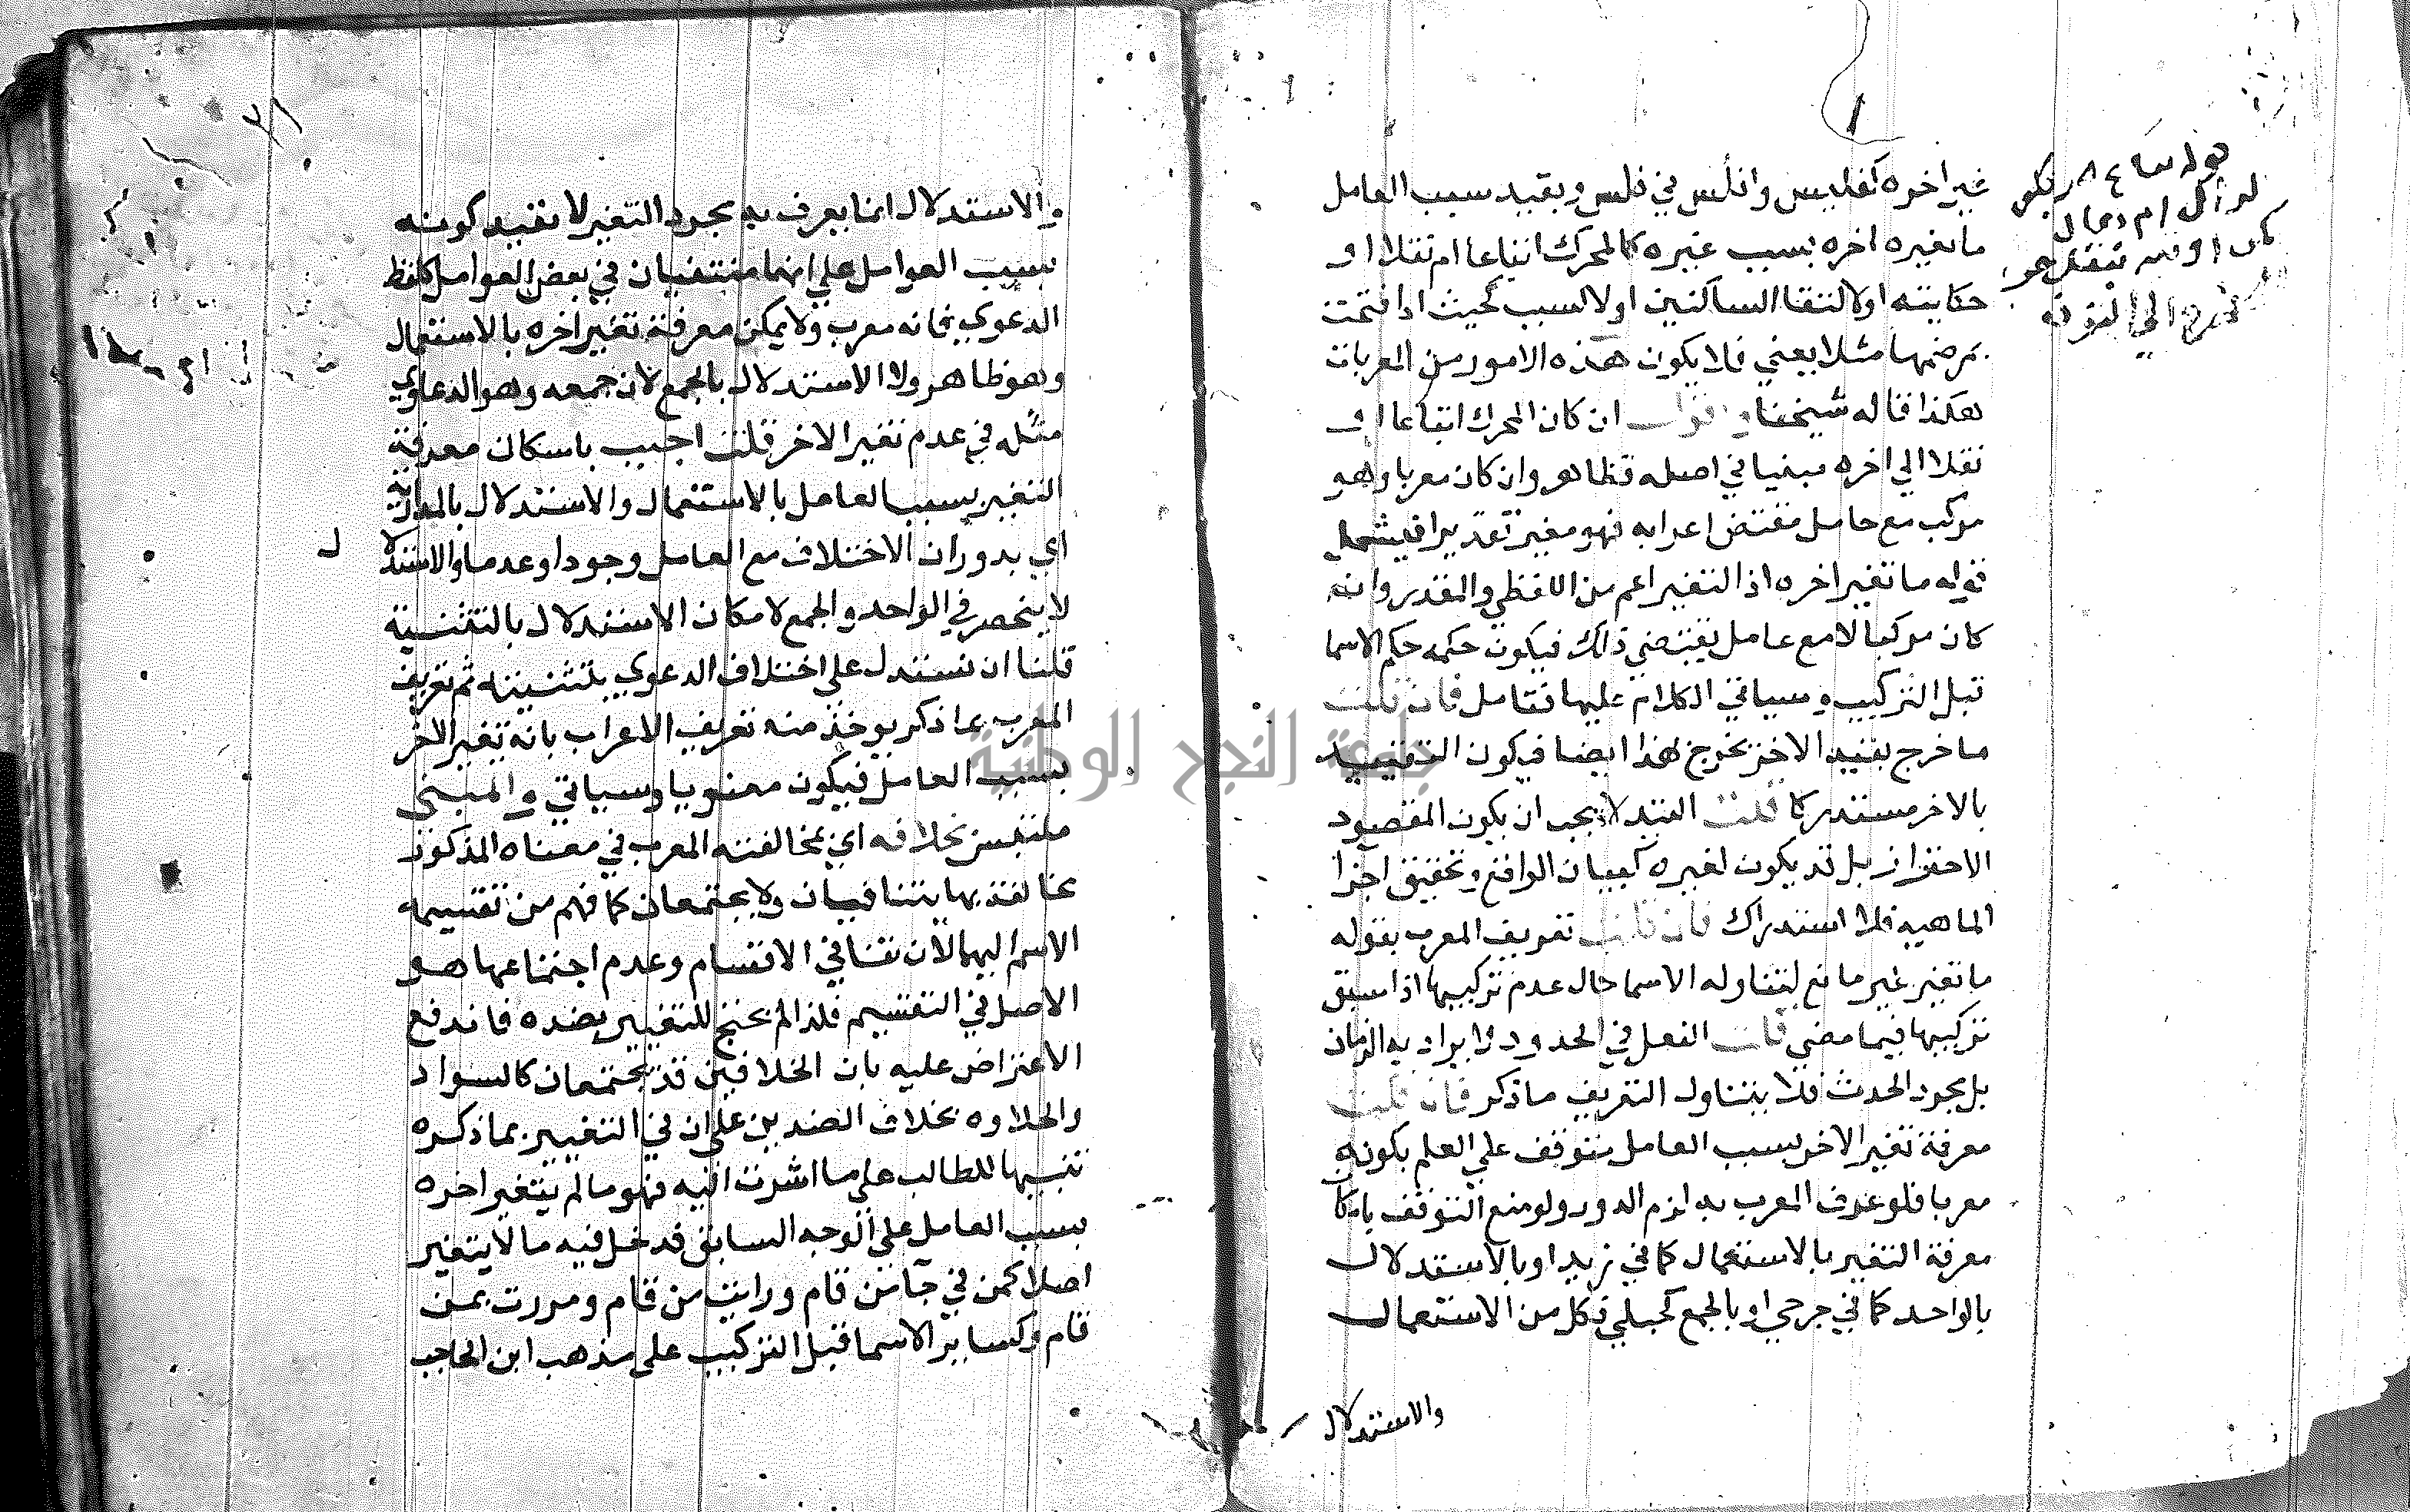 غير اخره كفليس وافلس في فلس وبقيد بسبب العامل
ما تغيره اخره بسبب غيره كالمحرك اتباعا ام نقلا او
حكايته او لالتقا الساكنين او لا لسبب كحيث اذا فتحت
بعد ضمها مثلا يعني فلا يكون هذه الامور من المعربات
هكذا قاله شيخنا واقول ان كان المحرك اتباعا او
نقلا الي اخره مبنيا في اصله فظاهر وان كان معربا وهو
مركب مع عامل مقتض اعرابه فهو مغير تقديرا فيشمل
قوله ما تغير اخره اذ التغير اعم من اللفظي والمقدر وان
كان مركبا لا مع عامل يقتضي ذلك فيكون حكمه حكم الاسما
قبل التركيب وسياتي الكلام عليها فتامل فان قلت
ما خرج بقيد الاخر يخرج بهذا ايضا فيكون التقييد
بالاخر مستدركا قلت القيد لا يجب ان يكون المقصود
الاحتراز بل قد يكون لغيره كبيان الواقع وتحقيق اجزا
الماهية فلا استدراك فان قلت تعريف المعرب بقوله
ما تغير غير مانع لتناوله الاسما حال عدم تركيبها اذا سبق
تركيبها فيما مضي قلت الفعل في الحدود لا يراد به الزمان
بل مجرد الحدث فلا يتناول التعريف ما ذكر فان قلت
معرفة تغير الاخر بسبب العامل متوقف علي العلم بكونه
معربا فلو عرف المعرب به لزم الدور ولو منع التوقف بامكا
معرفة التغير بالاستعمال كما في زيد او بالاستدلال
بالواحد كما في جرحي او بالجمع كحبلي فكل من الاستعمال
والاستدلال
والاستدلال انما يعرف به مجرد التغير لا بقيد كونه
بسبب العوامل علي انهما منتفيان في بعض العوامل كلفظ
الدعوي فانه معرب ولا يمكن معرفة تغير اخره بالاستعمال
وهو ظاهر ولا الاستدلال بالجمع لان جمعه وهو الدعاوي
مثله في عدم تغير الاخر قلت اجيب باسكان معرفة
التغير بسبب العامل بالاستعمال والاستدلال بالمدارية
اي بدوران الاختلاف مع العامل وجودا وعدما والاستدلا
ل
لا ينحصر في الواحد والجمع لامكان الاستدلال بالتثنية
قلنا ان نستدل علي اختلاف الدعوي بتثنيته ثم تعريف
المعرب بما ذكر يوخذ منه تعريف الاعراب بانه تغير الاخر
بسبب العامل فيكون معنويا وسياتي والمبني
ملتبس بخلافه اي بمخالفته المعرب في معناه المذكور
مخالفة بها يتنافيان ولا يجتمعان كما فهم من تقسيمه
الاسم اليهما لان تنافي الاقسام وعدم اجتماعها هو
الاصل في التقسيم فلذا لم يحتج للتغيير بضده فاندفع
الاعتراض عليه بان الخلافين قد يجتمعان كالسواد
والحلاوه بخلاف الضدين علي ان في التغيير بما ذكره
تنبيها للطالب علي ما اشرت اليه فهو ما لم يتغير اخره
بسبب العامل علي الوجه السابق فدخل فيه ما لا يتغير
اصلا كمن في جآ من قام ورايت من قام ومررت بمن
قام وكساير الاسما قبل التركيب علي مذهب ابن الحاجب
جامعة النجاح الوطنية